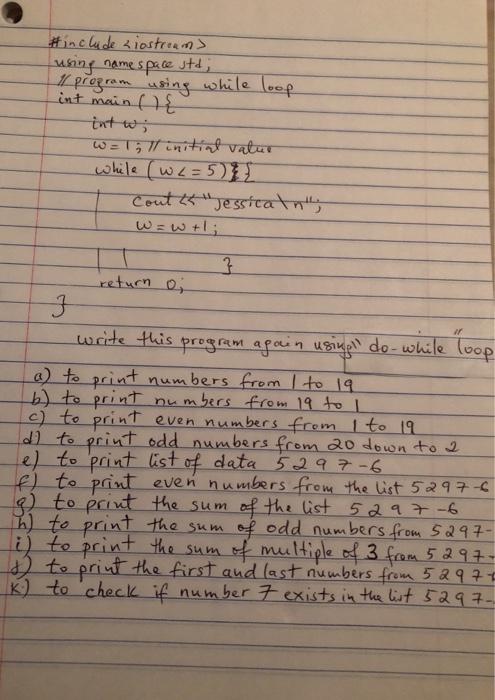 #include <iostream>
using namespace std;
// program using while loop
int main ( ) {
int w;
w = 1; // initial value
while (w <= 5) {
cout << "Jessica\n";
w = w + 1;
}
return 0;
}
write this program again using "do-while" loop
a) to print numbers from 1 to 19
b) to print numbers from 19 to 1
c) to print even numbers from 1 to 19
d) to print odd numbers from 20 down to 2
e) to print list of data 5 2 9 7 -6
f) to print even numbers from the list 5 2 9 7 -6
g) to print the sum of the list 5 2 9 7 -6
h) to print the sum of odd numbers from 5 2 9 7 -
i) to print the sum of multiple of 3 from 5 2 9 7 -
j) to print the first and last numbers from 5 2 9 7
k) to check if number 7 exists in the list 5 2 9 7 -